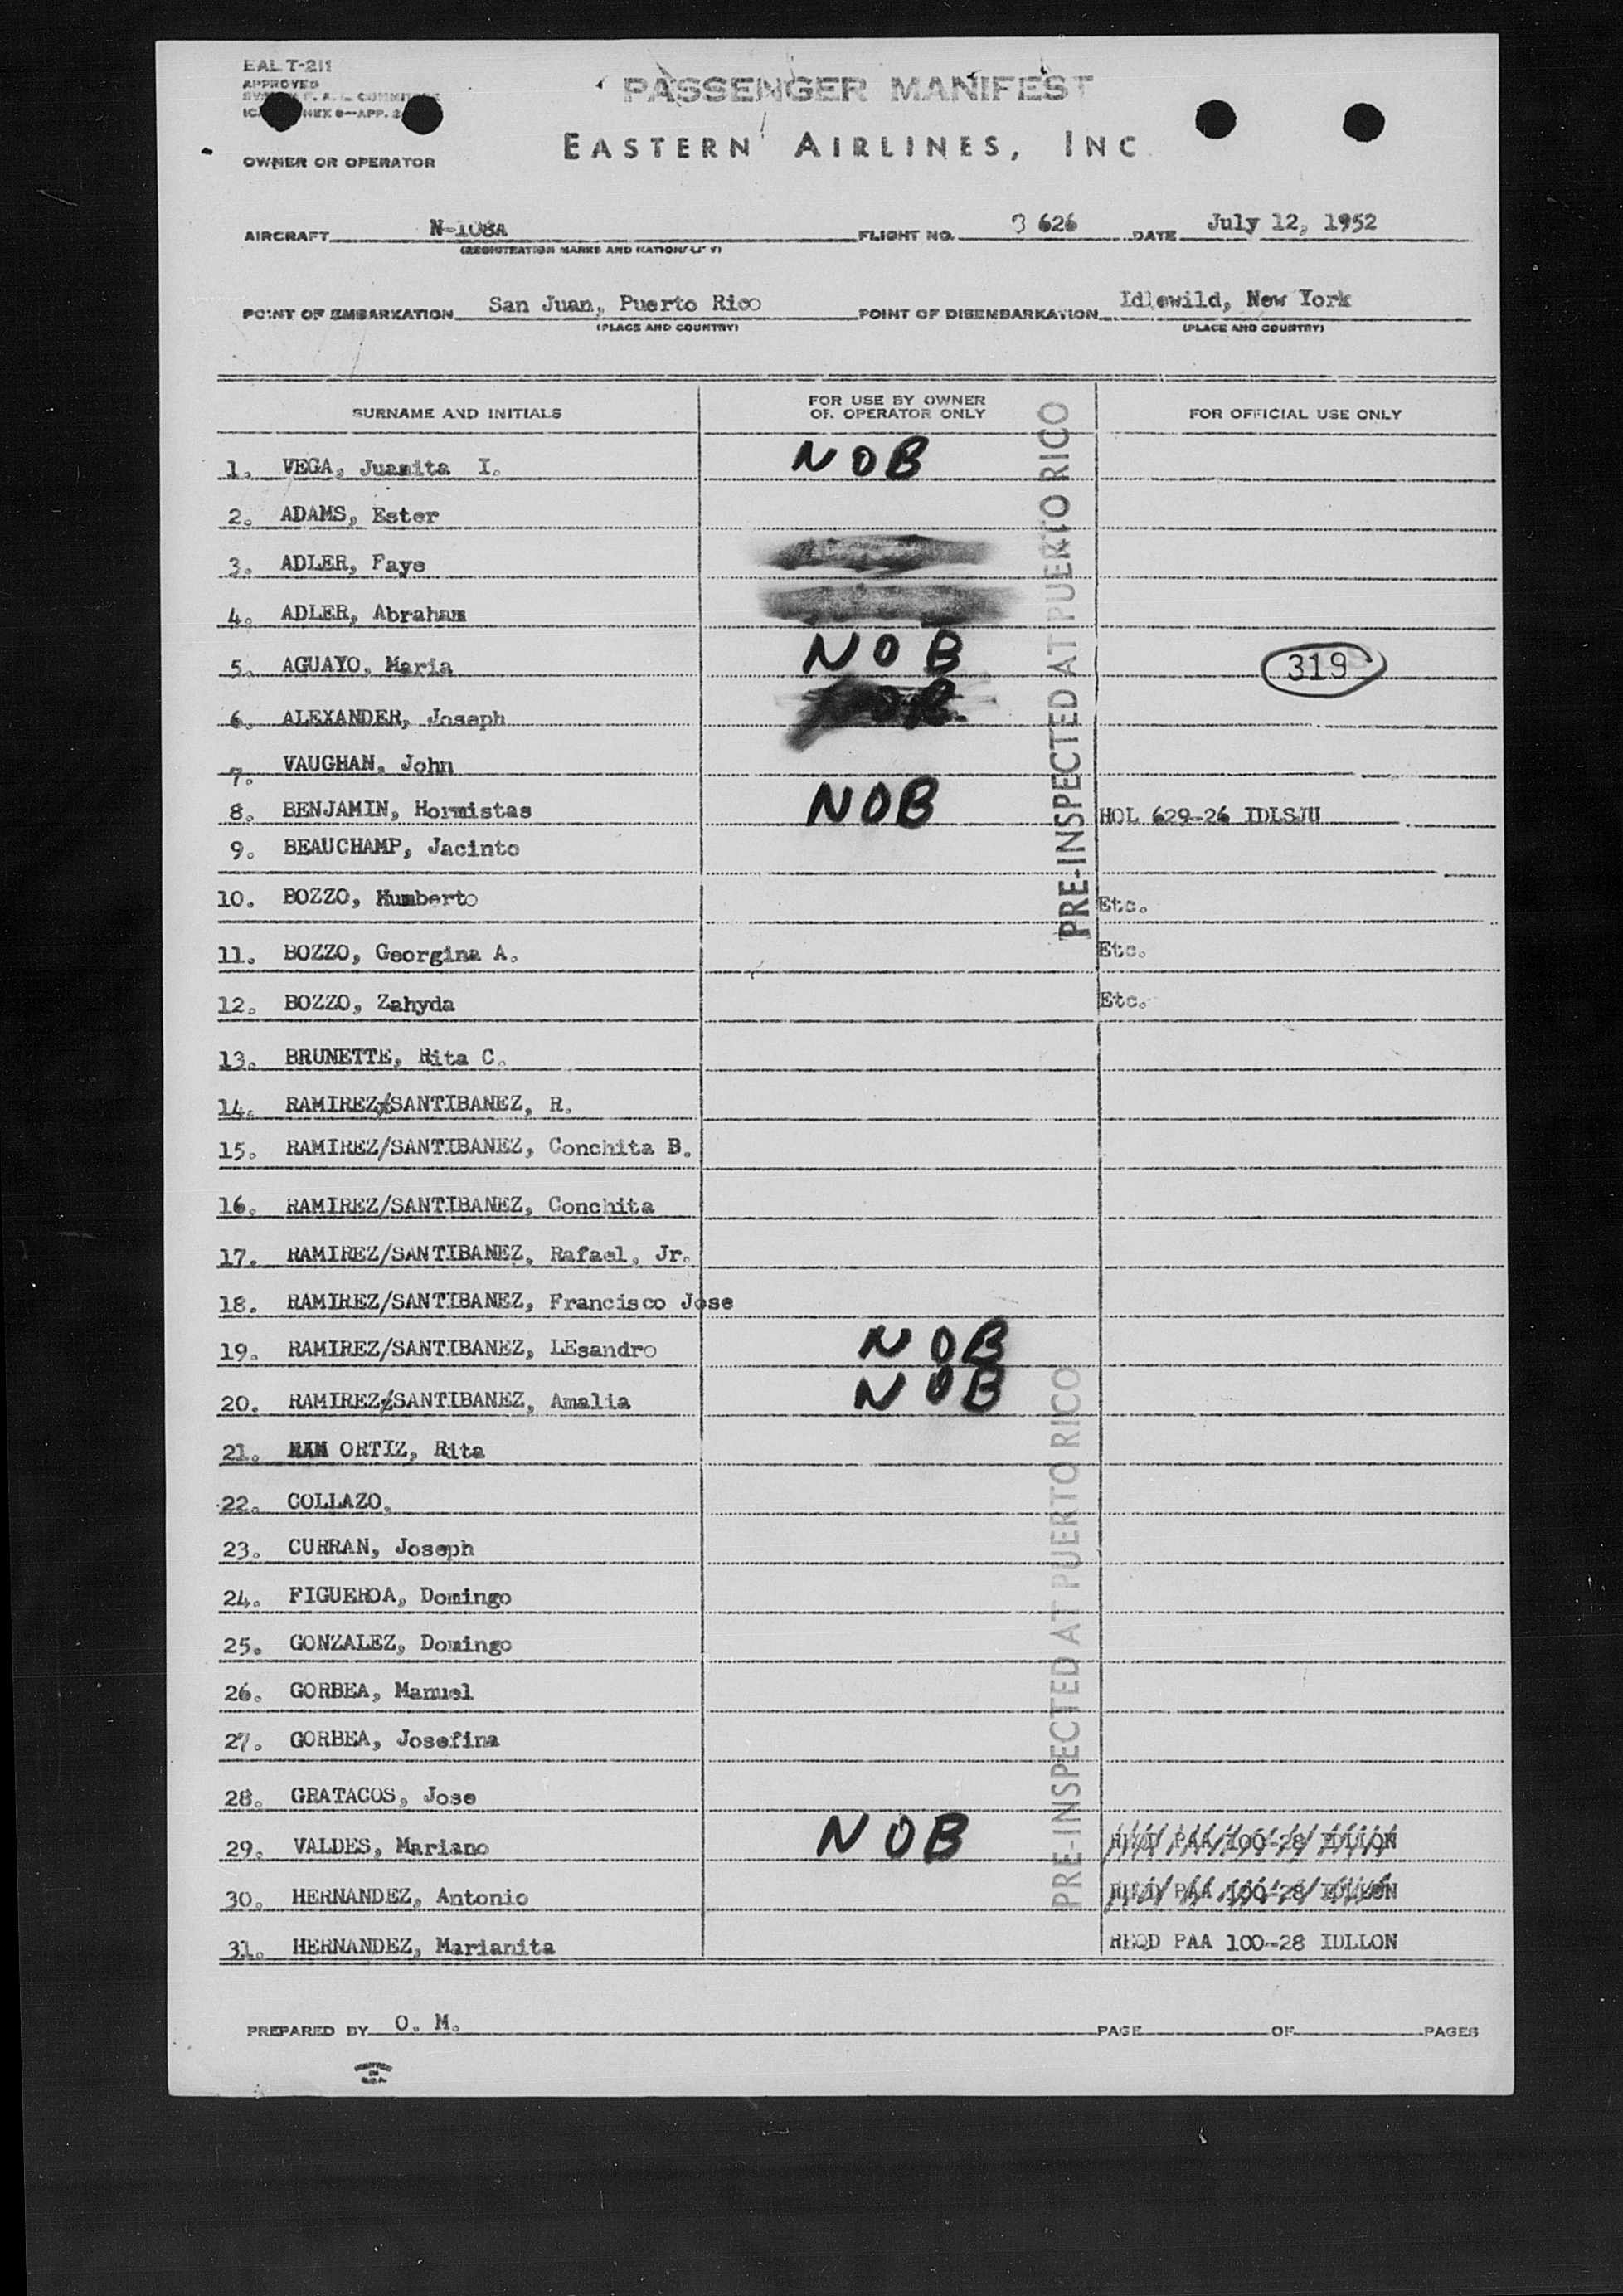 EAL T-211
APPROVED
PASSENGER MANIFEST
EASTERN AIRLINES, INC
OWNER OR OPERATOR
AIRCRAFT N-108A FLIGHT NO. 3 626 DATE July 12, 1952
(REGISTRATION MARKS AND NATIONALITY)
POINT OF EMBARKATION San Juan, Puerto Rico POINT OF DISEMBARKATION Idlewild, New York
(PLACE AND COUNTRY) (PLACE AND COUNTRY)
SURNAME AND INITIALS FOR USE BY OWNER OR OPERATOR ONLY FOR OFFICIAL USE ONLY
1. VEGA, Juanita I. NOB
2. ADAMS, Ester
3. ADLER, Faye
4. ADLER, Abraham
5. AGUAYO, Maria NOB 319
6. ALEXANDER, Joseph
7. VAUGHAN, John
8. BENJAMIN, Hormistas NOB HOL 629-26 IDLSJU
9. BEAUCHAMP, Jacinto
10. BOZZO, Humberto Etc.
11. BOZZO, Georgina A. Etc.
12. BOZZO, Zahyda Etc.
PRE-INSPECTED AT PUERTO RICO
13. BRUNETTE, Rita C.
14. RAMIREZ/SANTIBANEZ, R.
15. RAMIREZ/SANTIBANEZ, Conchita B.
16. RAMIREZ/SANTIBANEZ, Conchita
17. RAMIREZ/SANTIBANEZ, Rafael, Jr.
18. RAMIREZ/SANTIBANEZ, Francisco Jose
19. RAMIREZ/SANTIBANEZ, LEsandro NOB
20. RAMIREZ/SANTIBANEZ, Amalia NOB
21. ORTIZ, Rita
22. COLLAZO,
23. CURRAN, Joseph
24. FIGUEROA, Domingo
25. GONZALEZ, Domingo
26. GORBEA, Manuel
27. GORBEA, Josefina
28. GRATACOS, Jose
29. VALDES, Mariano NOB REQD PAA 100-28 IDLLON
30. HERNANDEZ, Antonio REQD PAA 100-28 IDLLON
31. HERNANDEZ, Marianita REQD PAA 100-28 IDLLON
PRE-INSPECTED AT PUERTO RICO
PREPARED BY O. M. PAGE OF PAGES